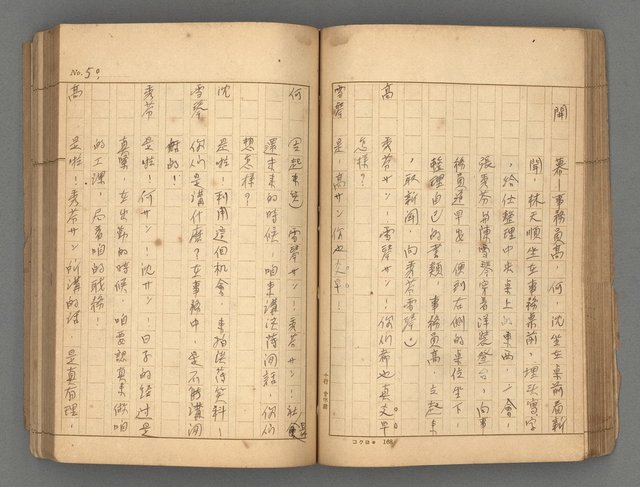 開　幕ー事務員高，何，沈坐在桌前看新
聞，林天順坐在事務桌前，埋頭寫字
，給仕整理中央桌上的東西，一會，
張秀芬與陳雪琴穿著洋裝登台，向事
務員道早安，便到右側的桌位坐下，
整理自己的書類，事務員高，立起來
，取新聞，向秀芬雪琴）
高　秀芬サン！雪琴サン！你们都也真文早。
怎樣？
雪琴　是！高サン你也
コクヨ 168
No. 50
何　（立起來）雪琴サン！秀芬サン！社長
還未來的時候，咱來講淡薄閒話，你们
想怎樣？
沈　是啦！利用這個机會，來
雪琴　你们是講什麼？在事務中，是不能講閒
話的！
秀芬　是啦！何サン！沈サン！日子的經過是
真緊，在出勤的時候，咱要想真來做咱
的工課，反省咱的職務！
高　是啦！秀芬サン所講的話，是真有理！